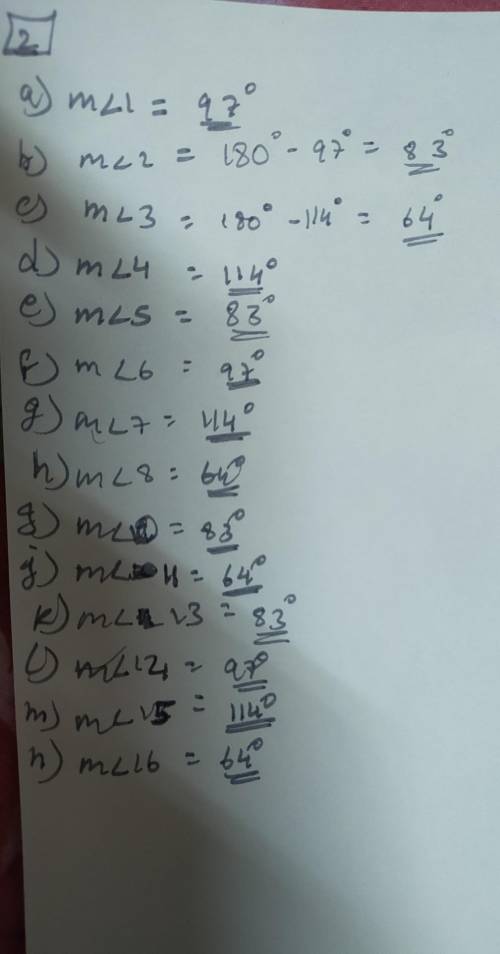 2
a) m∠1 = 97°
b) m∠2 = 180° - 97° = 83°
c) m∠3 = 180° - 114° = 64°
d) m∠4 = 114°
e) m∠5 = 83°
f) m∠6 = 97°
g) m∠7 = 114°
h) m∠8 = 64°
m∠10 = 83°
j) m∠11 = 64°
k) m∠13 = 83°
l) m∠14 = 97°
m) m∠15 = 114°
n) m∠16 = 64°